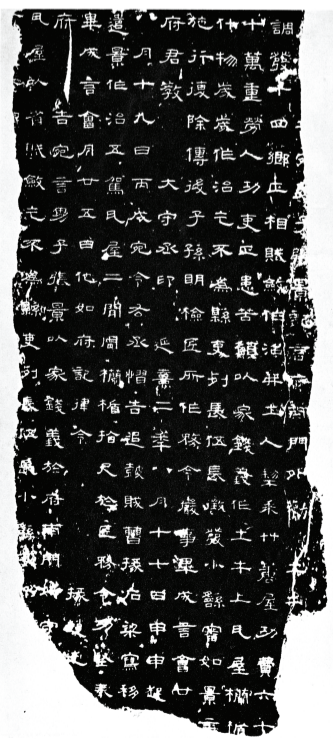 子張景記言府南門外勸土牛
調發十四鄉正相賦斂作治并土人犁耒艸蓑屋功費六七
十萬重勞人功吏正患苦願以家錢義作土牛上瓦屋欄楯
什物歲歲作治乞不為縣吏列長伍長徵發小繇審如景言
施行復除傳後子孫明檢匠所作務令嚴事畢成言會廿
府君教 大守丞印 延熹二年八月十七日甲申起
月十九日丙戌宛令右丞慴告追皷賊曹掾石梁寫移
遣景作治五駕瓦屋二間周欄楯拾尺於匠務令功堅奉
畢成言會月廿五日他如府記律令 掾趙述
府告宛言男子張景以家錢義於府南門外守
瓦屋以省賦斂乞不為縣吏列長伍長小繇